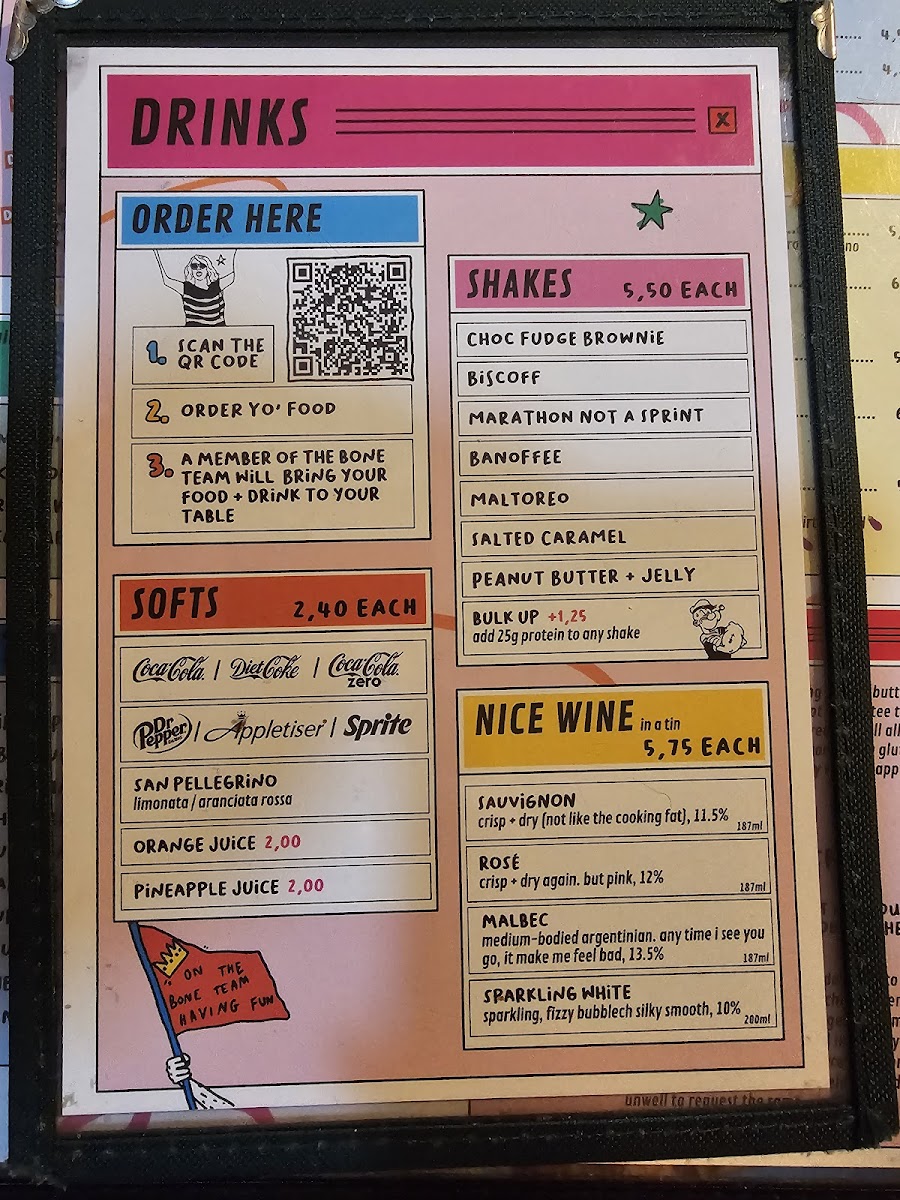 DRINKS
X
ORDER HERE
1. SCAN THE
QR CODE
2. ORDER YO' FOOD
3. A MEMBER OF THE BONE
TEAM WILL BRING YOUR
FOOD + DRINK TO YOUR
TABLE
SOFTS 2,40 EACH
Coca-Cola | Diet Coke | Coca-Cola
zero
Dr Pepper | Appletiser | Sprite
SAN PELLEGRINO
limonata / aranciata rossa
ORANGE JUICE 2,00
PINEAPPLE JUICE 2,00
ON THE
BONE TEAM
HAVING FUN
SHAKES 5,50 EACH
CHOC FUDGE BROWNIE
BISCOFF
MARATHON NOT A SPRINT
BANOFFEE
MALTOREO
SALTED CARAMEL
PEANUT BUTTER + JELLY
BULK UP +1,25
add 25g protein to any shake
NICE WINE in a tin
5,75 EACH
SAUVIGNON
crisp + dry (not like the cooking fat), 11.5% 187ml
ROSÉ
crisp + dry again. but pink, 12% 187ml
MALBEC
medium-bodied argentinian. any time i see you
go, it make me feel bad, 13.5% 187ml
SPARKLING WHITE
sparkling, fizzy bubblech silky smooth, 10% 200ml